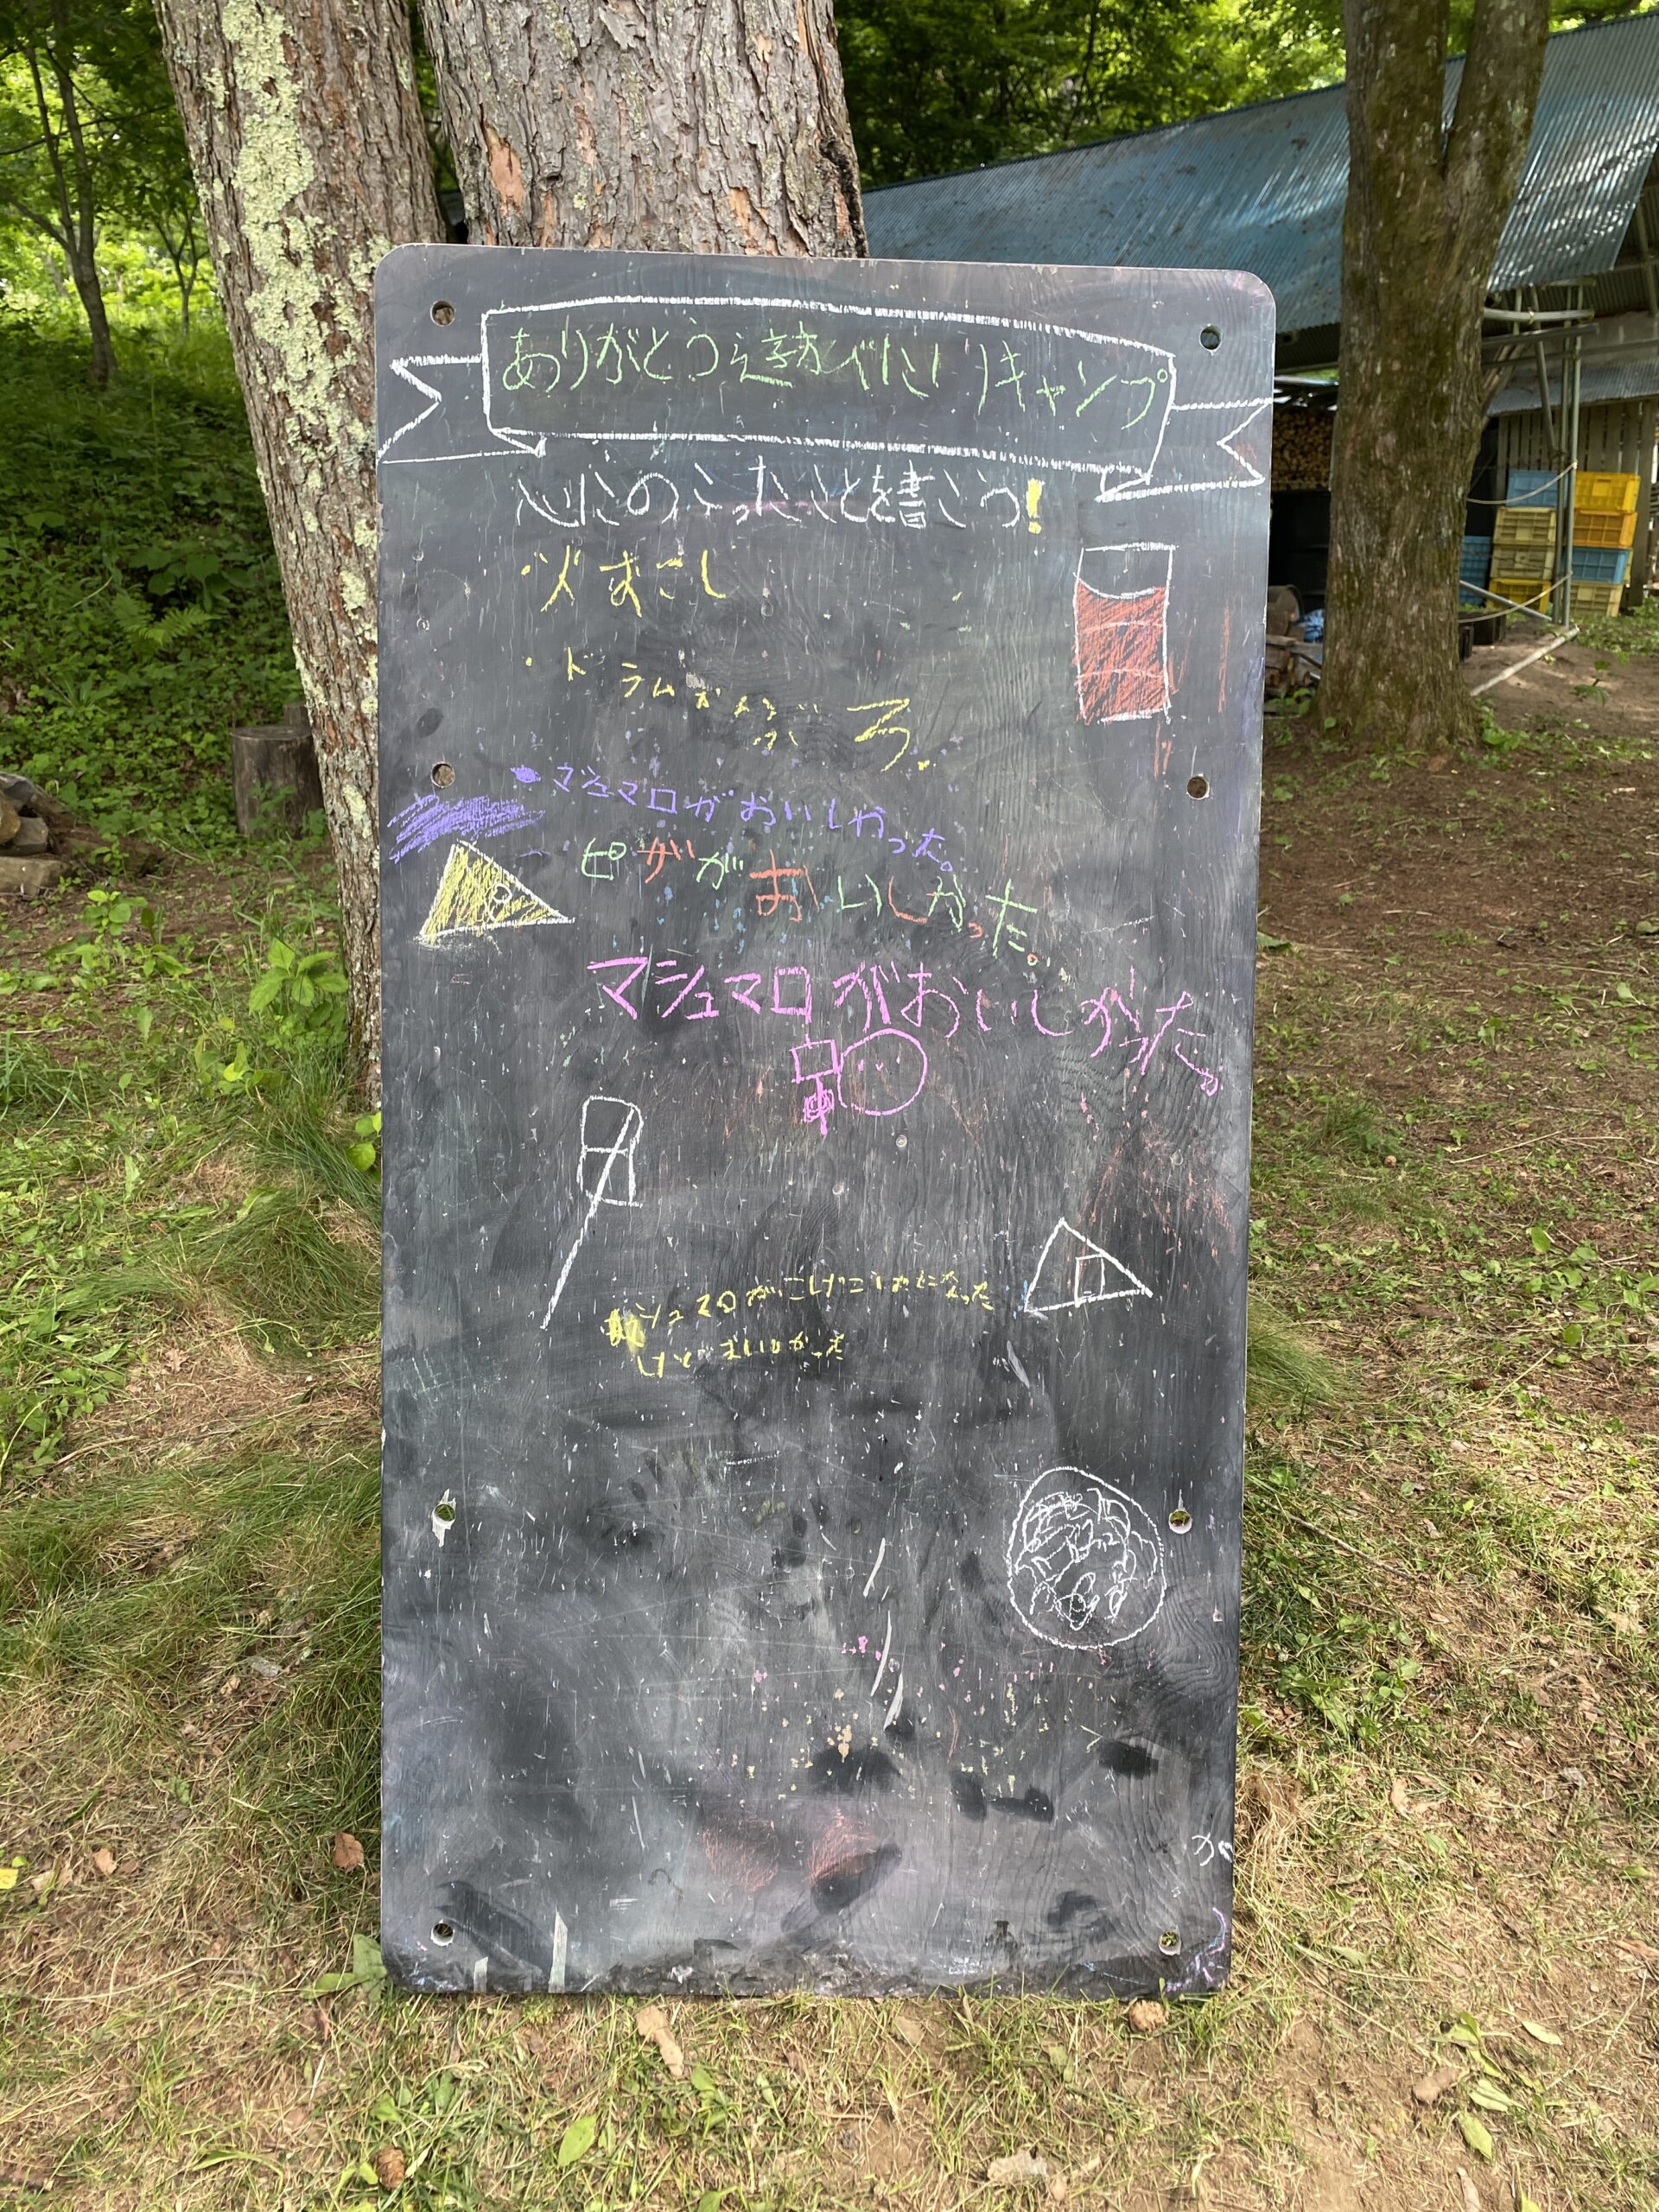 ありがとうえ詩べにしりキャンプ
心にのこったことを書こう!
・火おこし
・ドラムかんぶろ。
・マシュマロがおいしかった。
ピザがおいしかった。
マシュマロがおいしかった。
マシュマロがこげこげになった
けどおいしかった
か